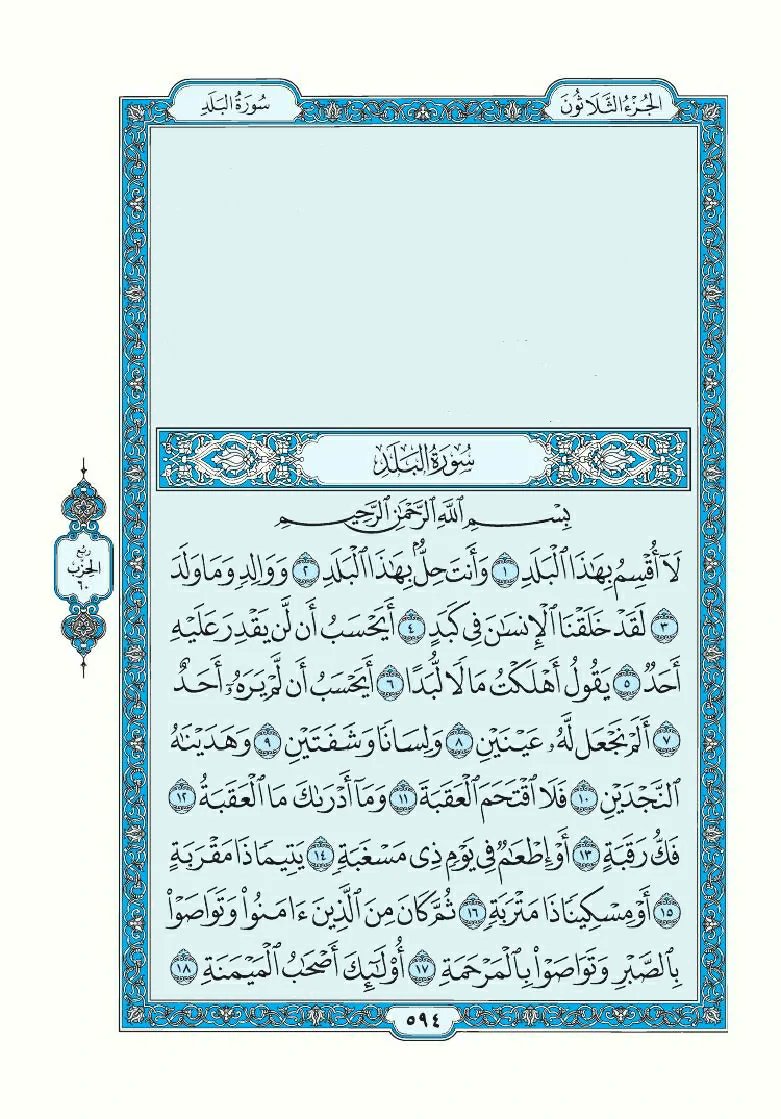 الجُزْءُ الثَّلَاثُونَ
سُورَةُ البَلَدِ
سُورَةُ البَلَدِ
بِسْمِ ٱللَّهِ ٱلرَّحْمَٰنِ ٱلرَّحِيمِ
لَآ أُقْسِمُ بِهَٰذَا ٱلْبَلَدِ ١ وَأَنتَ حِلُّۢ بِهَٰذَا ٱلْبَلَدِ ٢ وَوَالِدٍ وَمَا وَلَدَ
٣ لَقَدْ خَلَقْنَا ٱلْإِنسَٰنَ فِى كَبَدٍ ٤ أَيَحْسَبُ أَن لَّن يَقْدِرَ عَلَيْهِ
أَحَدٌ ٥ يَقُولُ أَهْلَكْتُ مَالًا لُّبَدًا ٦ أَيَحْسَبُ أَن لَّمْ يَرَهُۥٓ أَحَدٌ
٧ أَلَمْ نَجْعَل لَّهُۥ عَيْنَيْنِ ٨ وَلِسَانًا وَشَفَتَيْنِ ٩ وَهَدَيْنَٰهُ
ٱلنَّجْدَيْنِ ١٠ فَلَا ٱقْتَحَمَ ٱلْعَقَبَةَ ١١ وَمَآ أَدْرَىٰكَ مَا ٱلْعَقَبَةُ ١٢
فَكُّ رَقَبَةٍ ١٣ أَوْ إِطْعَٰمٌ فِى يَوْمٍ ذِى مَسْغَبَةٍ ١٤ يَتِيمًا ذَا مَقْرَبَةٍ
١٥ أَوْ مِسْكِينًا ذَا مَتْرَبَةٍ ١٦ ثُمَّ كَانَ مِنَ ٱلَّذِينَ ءَامَنُوا۟ وَتَوَاصَوْا۟
بِٱلصَّبْرِ وَتَوَاصَوْا۟ بِٱلْمَرْحَمَةِ ١٧ أُو۟لَٰٓئِكَ أَصْحَٰبُ ٱلْمَيْمَنَةِ ١٨
ربع
الحِزْب
٦٠
٥٩٤